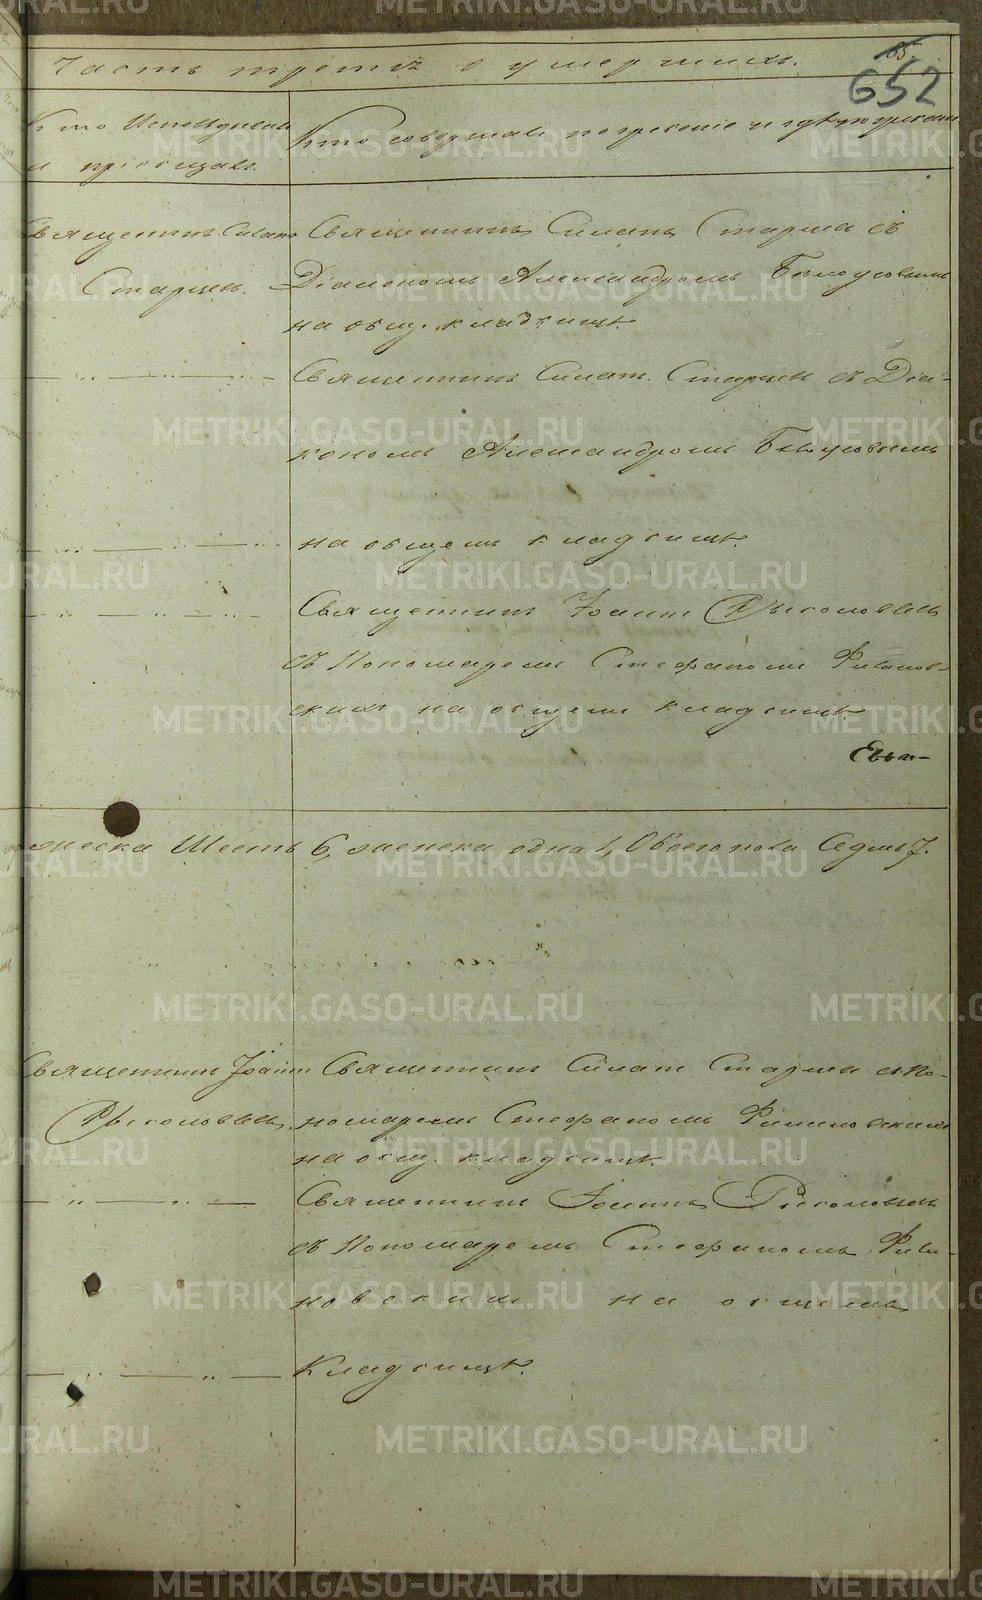 65.
652
Часть третья о умершихъ.
Кто Исповѣдывалъ
и пріобщалъ.
Кто совершалъ погребеніе и гдѣ погребены
Священникъ Силант
Старцевъ.
Священникъ Силантъ Старцевъ съ
Діакономъ Александромъ Бѣлоусовымъ
на общ. кладбищѣ.
Священникъ Силант. Старцевъ съ Діа-
кономъ Александромъ Бѣлоусовымъ
на общемъ кладбищѣ.
Священникъ Іоаннъ
съ Пономаремъ Стефаномъ Филинов-
скимъ на общемъ кладбищѣ.
мужеска Шесть 6, женска одна 1, Обоего пола Седмь 7.
Священникъ Іоаннъ
Священникъ Силантъ Старцевъ съ По-
номаремъ Стефаномъ Филиновскимъ
на общ. кладбищѣ.
Священникъ Іоаннъ
съ Пономаремъ Стефаномъ Фили-
новскимъ на общемъ
Кладбищѣ.
METRIKI.GASO-URAL.RU